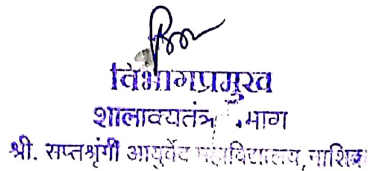 विभागप्रमुख
शालाक्यतंत्र विभाग
श्री. सप्तश्रृंगी आयुर्वेद महाविद्यालय, नाशिक